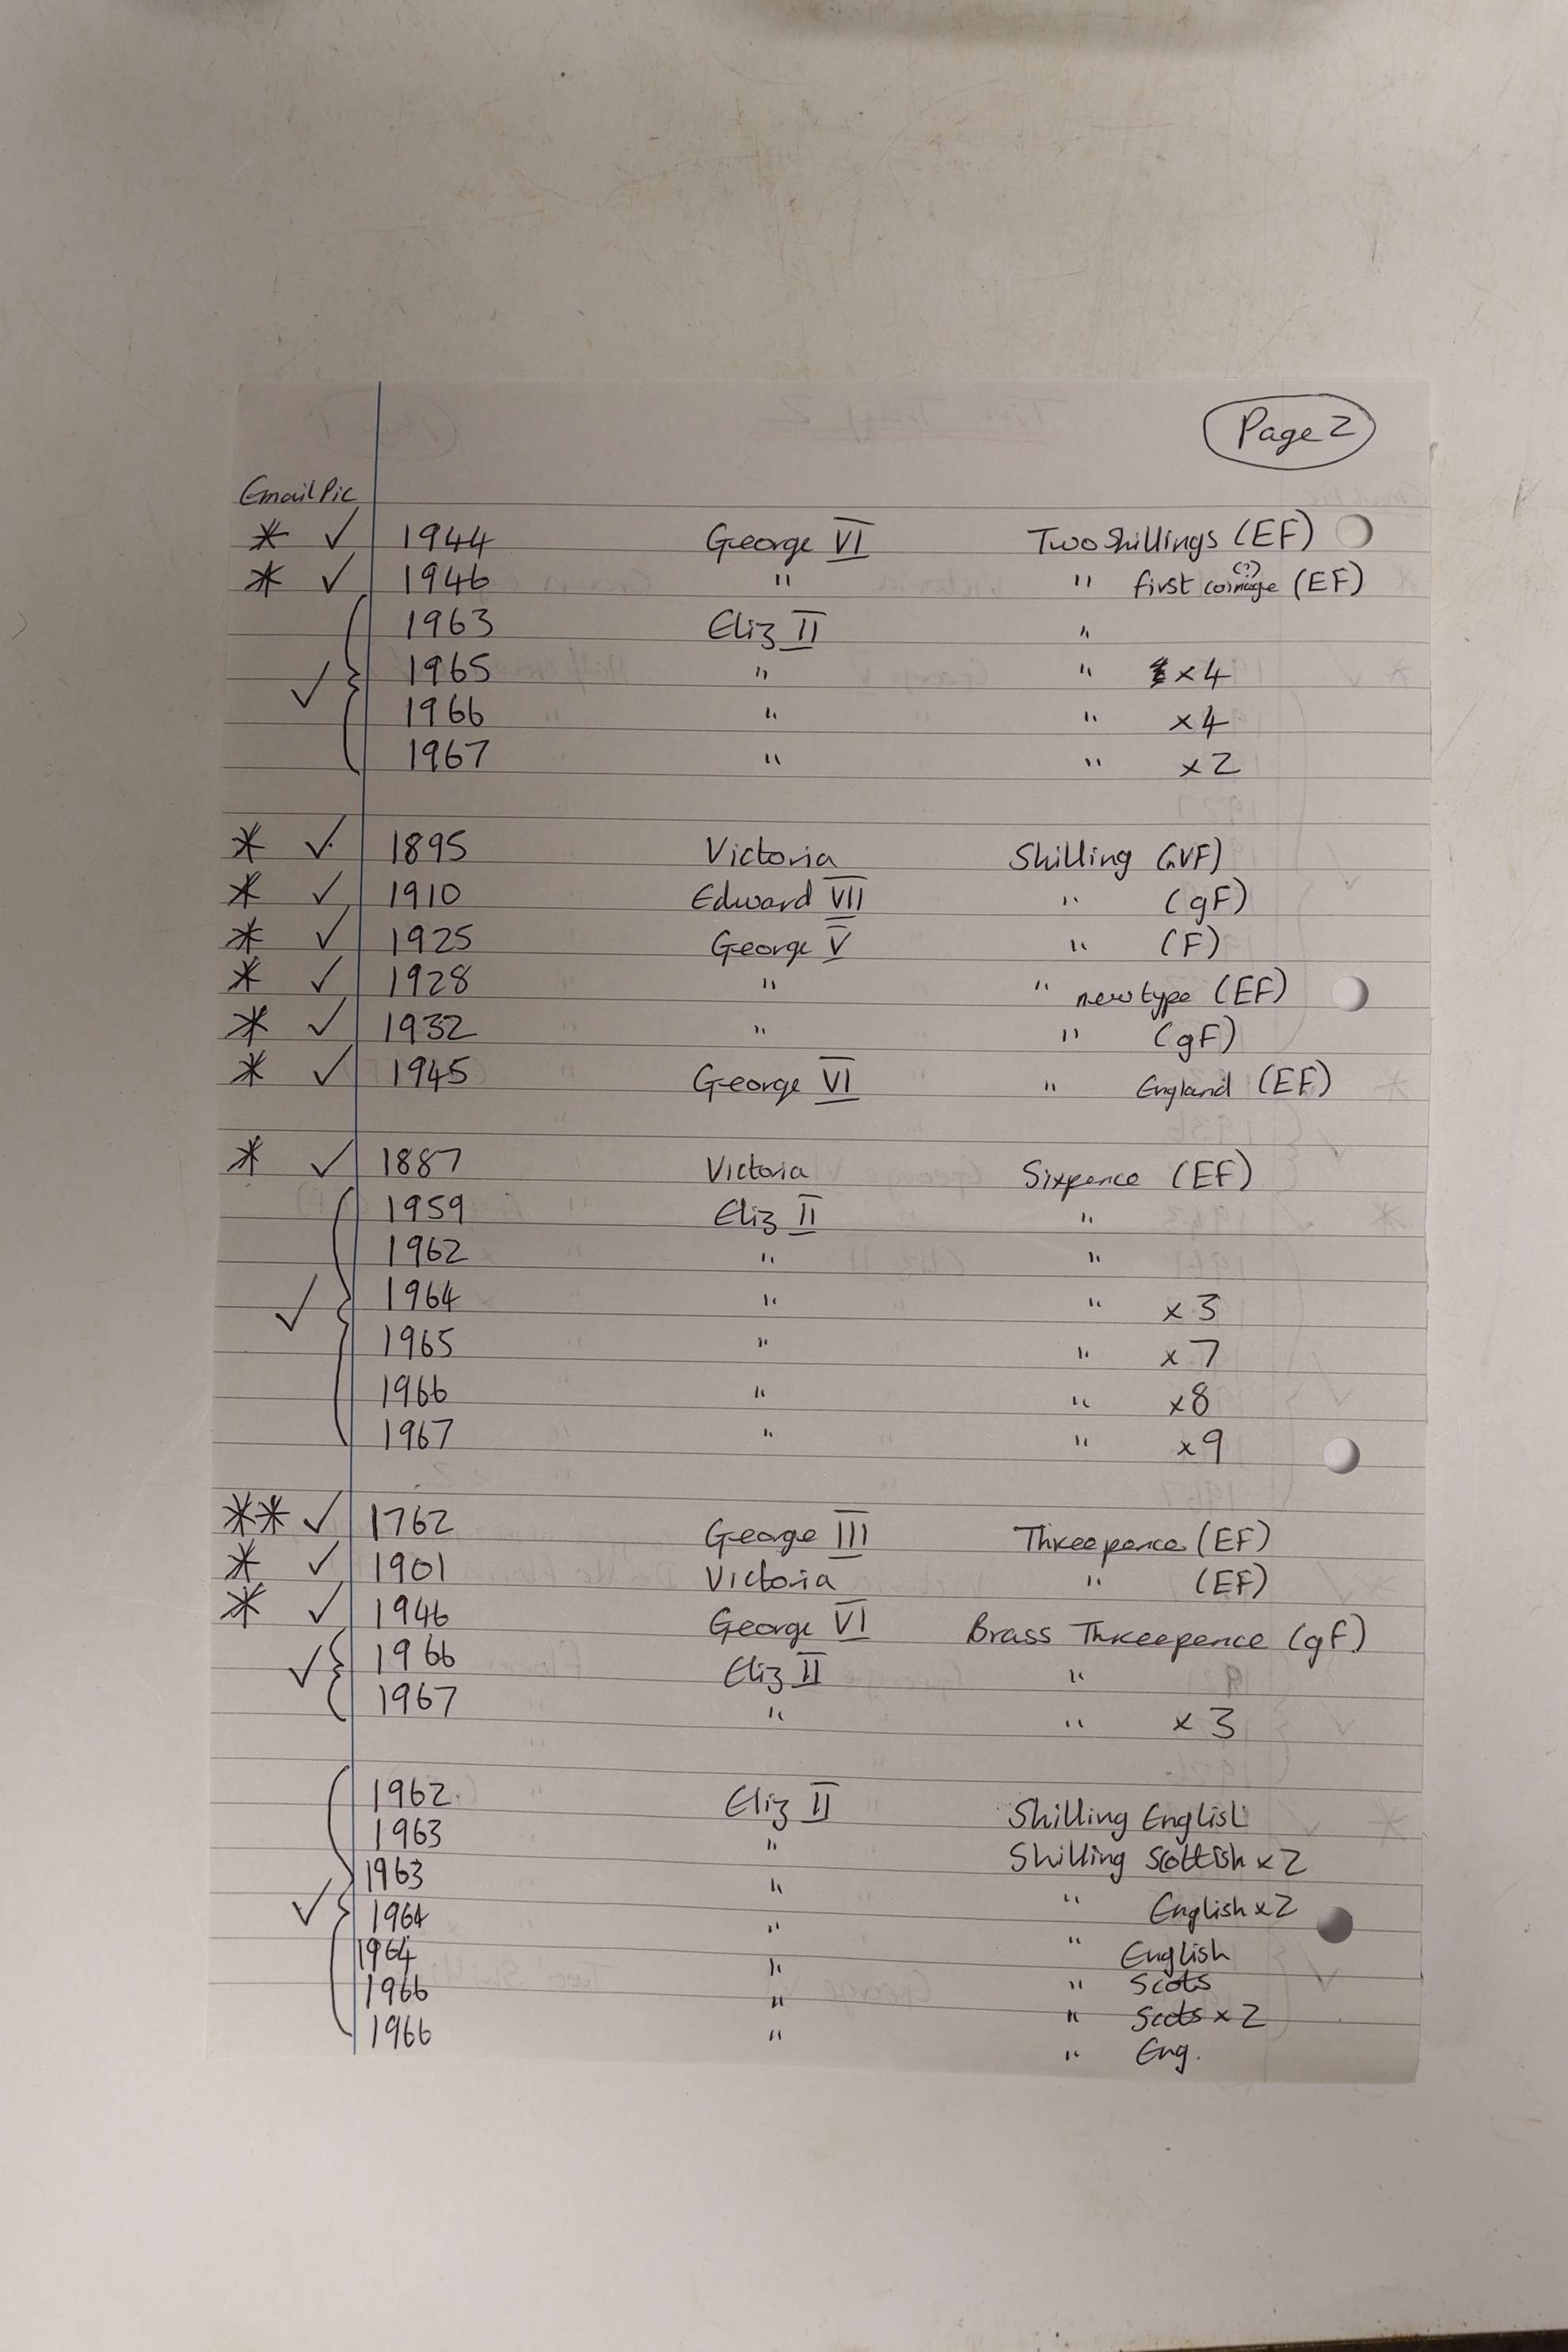 Page 2
Email Pic
* ✓ 1944 George VI Two Shillings (EF)
* ✓ 1946 " " first coinage (?) (EF)
1963 Eliz II "
✓ 1965 " " x4
1966 " " x4
1967 " " x2
* ✓ 1895 Victoria Shilling (VF)
* ✓ 1910 Edward VII " (gF)
* ✓ 1925 George V " (F)
* ✓ 1928 " " new type (EF)
* ✓ 1932 " " (gF)
* ✓ 1945 George VI " England (EF)
* ✓ 1887 Victoria Sixpence (EF)
1959 Eliz II "
1962 " "
✓ 1964 " " x3
1965 " " x7
1966 " " x8
1967 " " x9
** ✓ 1762 George III Threepence (EF)
* ✓ 1901 Victoria " (EF)
* ✓ 1946 George VI Brass Threepence (gF)
✓ 1966 Eliz II "
1967 " " x3
1962 Eliz II Shilling English
1963 " Shilling Scottish x2
1963 " " English x2
✓ 1964 " " English
1964 " " Scots
1966 " " Scots x2
1966 " " Eng.